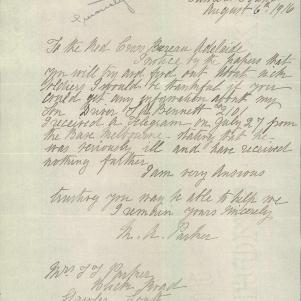 August 6th 1916
To the Red Cross Bureau Adelaide
I notice by the papers that
you will try and find out about sick
Soldiers I should be thankful if you
could get any information about my
Son Driver Bennett
I received a Telegram on July 27 from
the Base Melbourne stating that he
was seriously ill and have received
nothing further
I am very anxious
trusting you may be able to help me
I remain yours sincerely
M. A. Parker
Mrs Parker
Road
Gawler South